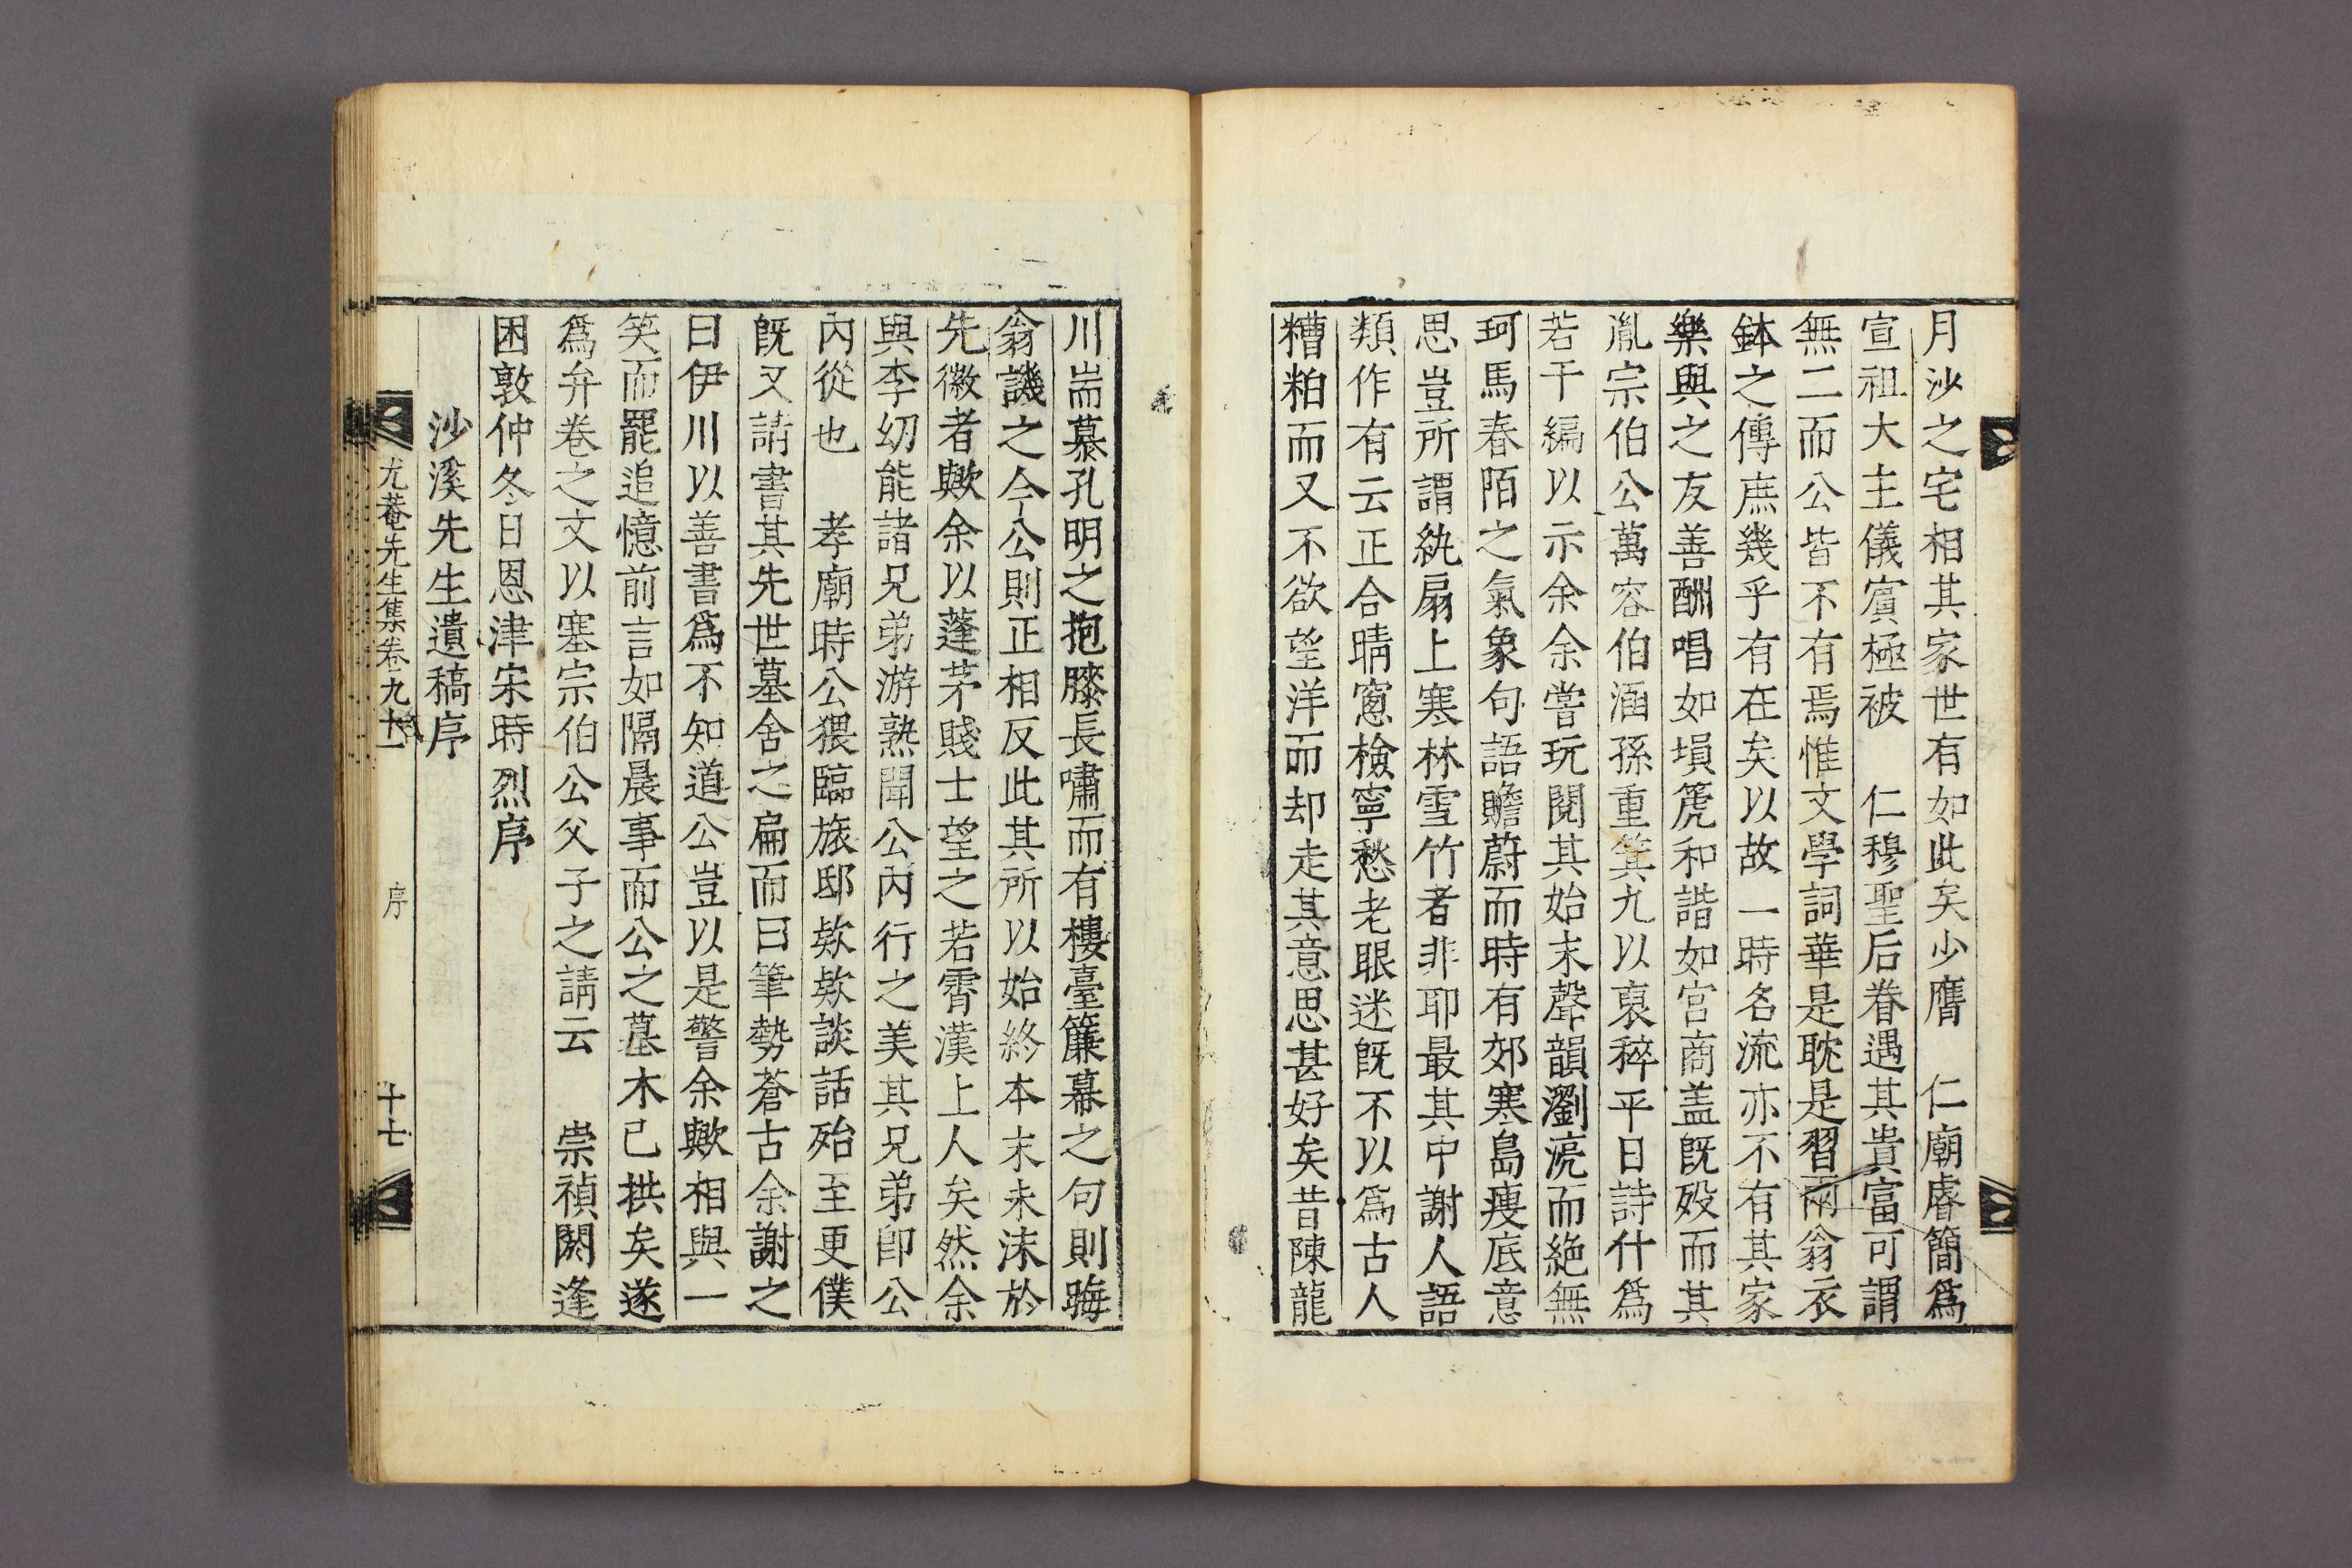 月沙之宅相其家世有如此矣少膺 仁廟睿簡爲
宣祖大主儀賓極被 仁穆聖后眷遇其貴富可謂
無二而公皆不有焉惟文學詞華是耽是習兩翁衣
鉢之傳庶幾乎有在矣以故一時名流亦不有其家
樂與之友善酬唱如塤箎和諧如宮商盖旣歿而其
胤宗伯公萬容伯涵孫重箕九以裒稡平日詩什爲
若干編以示余余嘗玩閱其始末聲韻瀏湸而絶無
珂馬春陌之氣象句語贍蔚而時有郊寒島瘦底意
思豈所謂紈扇上寒林雪竹者非耶最其中謝人語
類作有云正合晴窻檢寧愁老眼迷旣不以爲古人
糟粕而又不欲望洋而却走其意思甚好矣昔陳龍
川耑慕孔明之抱膝長嘯而有樓臺簾幕之句則晦
翁譏之今公則正相反此其所以始終本末未沫於
先徽者歟余以蓬茅賤士望之若霄漢上人矣然余
與李幼能諸兄弟游熟聞公內行之美其兄弟卽公
內從也 孝廟時公猥臨旅邸欵欵談話殆至更僕
旣又請書其先世墓舍之扁而曰筆勢蒼古余謝之
曰伊川以善書爲不知道公豈以是警余歟相與一
笑而罷追憶前言如隔晨事而公之墓木已拱矣遂
爲弁卷之文以塞宗伯公父子之請云 崇禎閼逢
困敦仲冬日恩津宋時烈序
沙溪先生遺稿序
尤菴先生集卷九十一 序 十七